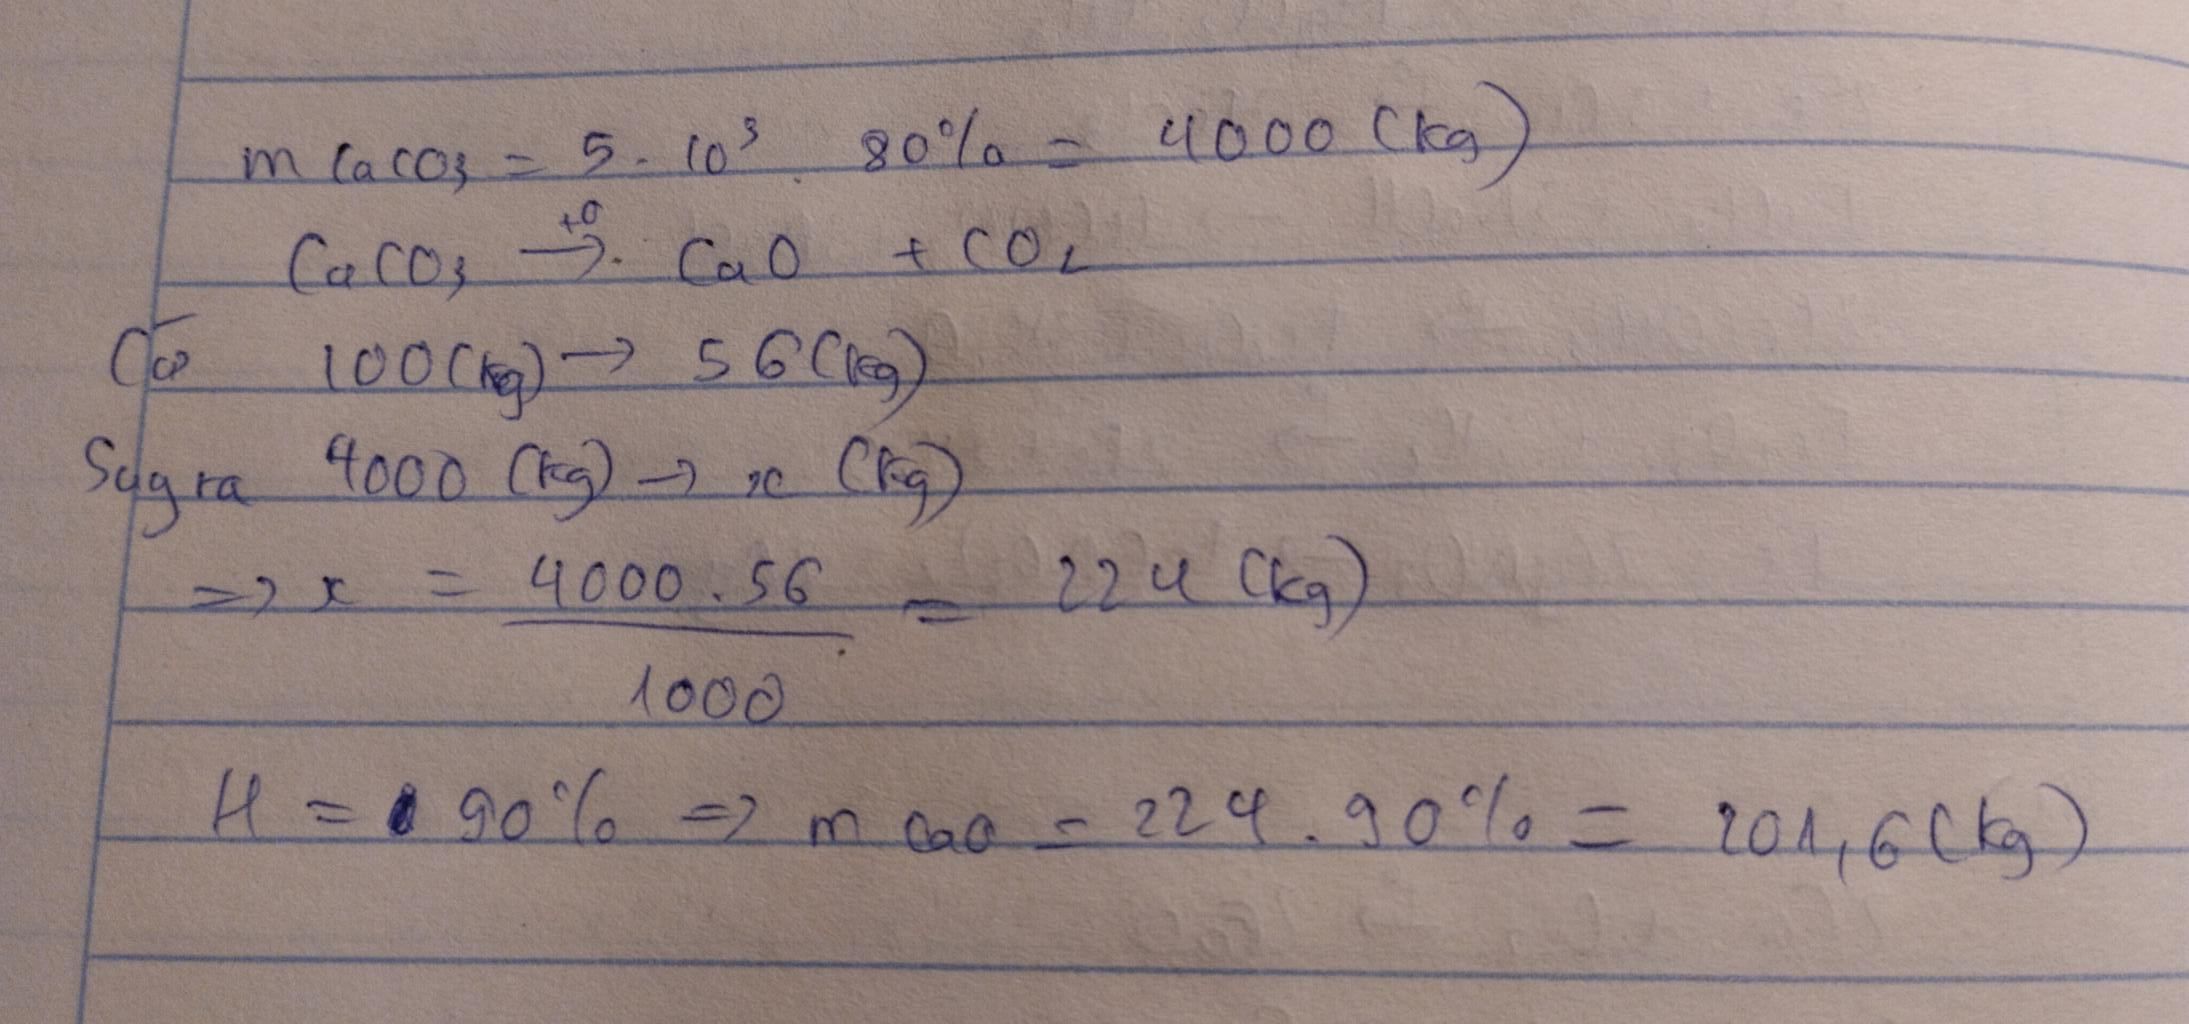 m CaCO3 = 5. 10³ . 80% = 4000 (kg)
CaCO3 →t⁰ CaO + CO2
Cứ 100 (kg) → 56 (kg)
Suy ra 4000 (kg) → x (kg)
=> x = 4000.56 / 1000 = 224 (kg)
H = 90% => m CaO = 224.90% = 201,6 (kg)